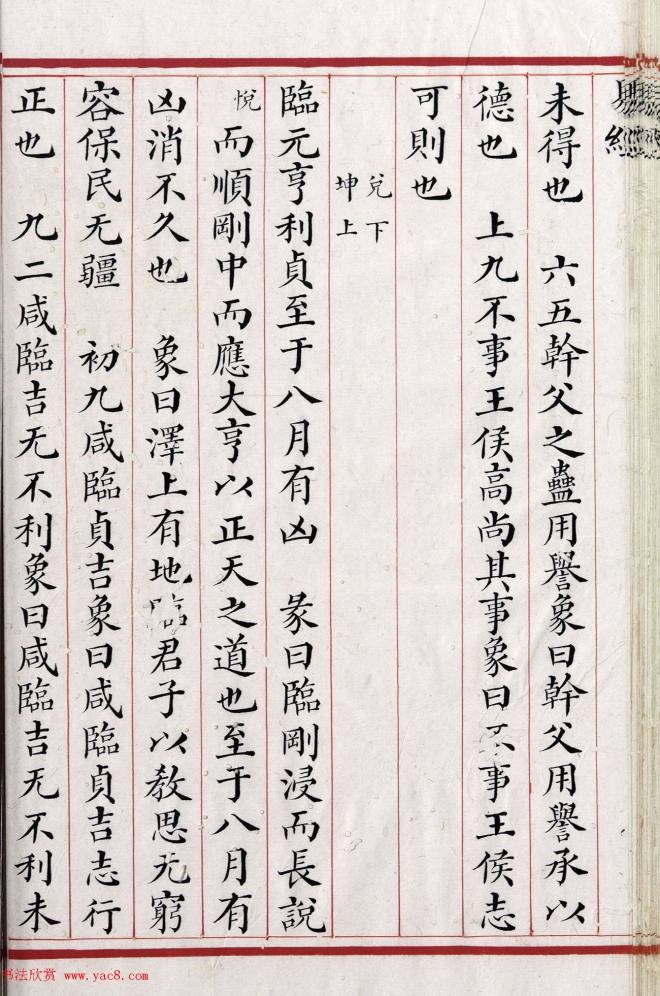 易經
未得也　六五幹父之蠱用譽象曰幹父用譽承以
德也　上九不事王侯高尚其事象曰不事王侯志
可則也
兌下
坤上
臨元亨利貞至于八月有凶　彖曰臨剛浸而長說
悅
而順剛中而應大亨以正天之道也至于八月有
凶消不久也　象曰澤上有地臨君子以教思无窮
容保民无疆　初九咸臨貞吉象曰咸臨貞吉志行
正也　九二咸臨吉无不利象曰咸臨吉无不利未
书法欣赏 www.yac8.com